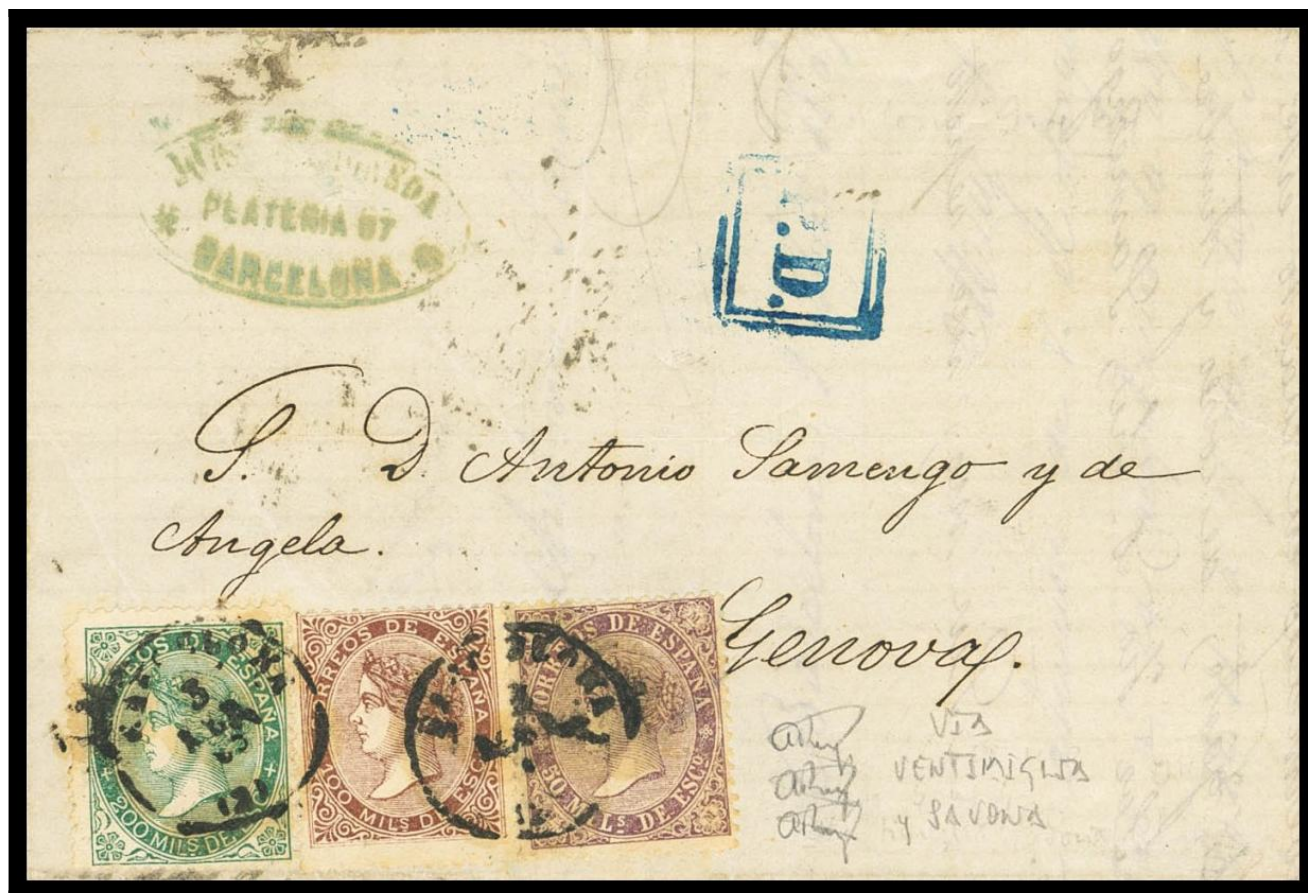 PLATERIA 57
BARCELONA
P.D.
S. D. Antonio Samengo y de
Angela.
Genova.
CORREOS DE ESPAÑA
200 MILS DE
BARCELONA
CORREOS DE ESPAÑA
100 MILS DE ESCO
BARCELONA
CORREOS DE ESPAÑA
50 MILS DE ESCO
VIA
VENTIMIGLIA
y SAVONA